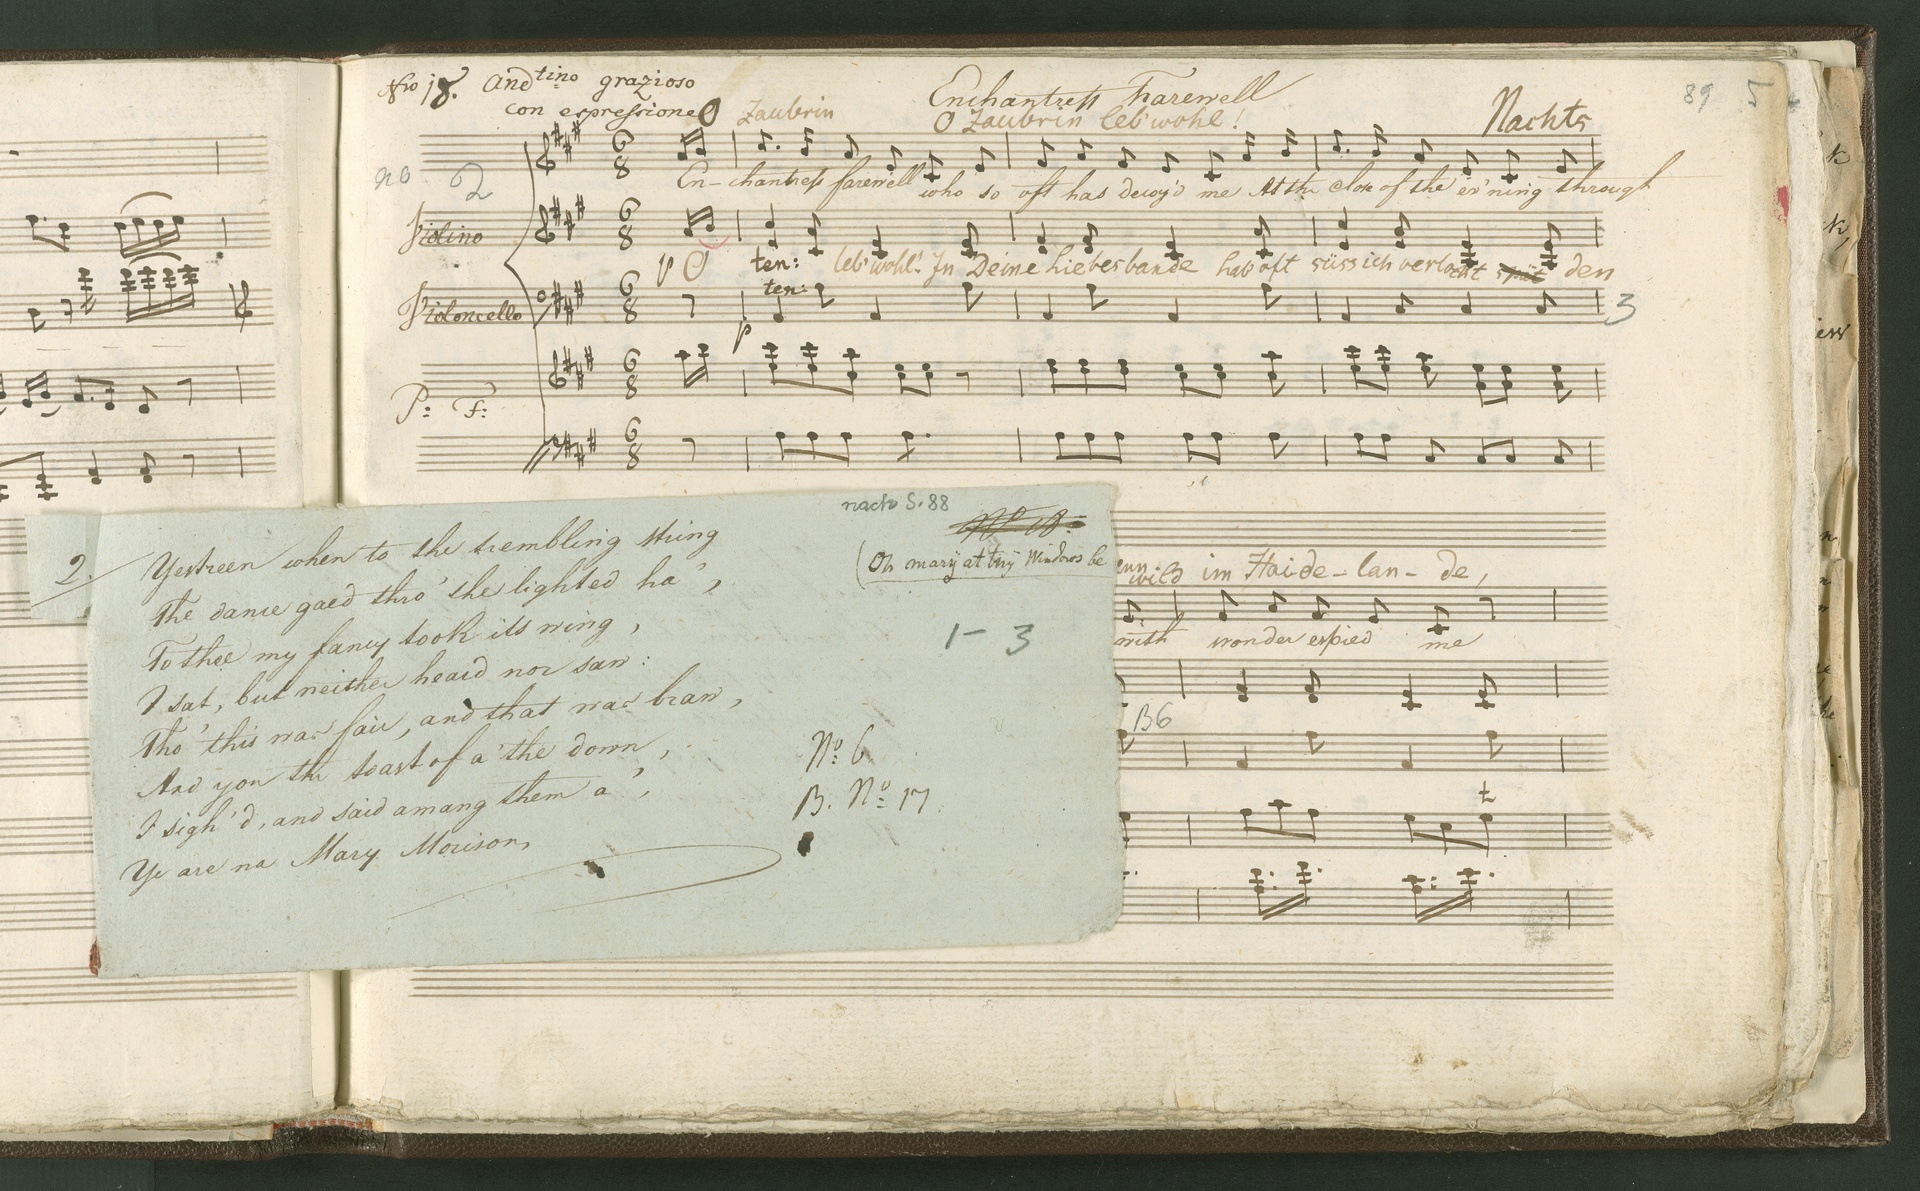 No 18. Andtino grazioso
con espressione
O Zaubrin
Enchantress Farewell
O Zaubrin leb'wohl!
Nachts
89 5
no 2
En-chantress farewell who so oft has decoy'd me At the close of the ev'ning through
Violino
p O ten: leb'wohl! In Deine Liebesbande hab oft süss ich verlockt spät den
ten:
Violoncello
p
3
P: F:
nach S. 88
No 18.
(Oh mary at thy Windows be
2.
Yestreen when to the trembling string
The dance gaed thro' the lighted ha',
To thee my fancy took its wing,
I sat, but neither heard nor saw:
Tho' this was fair, and that was braw,
And yon the toast of a' the down,
I sigh'd, and said amang them a',
Ye are na Mary Morison,
1-3
No 6
B. No 17
wild im Haide-lan-de,
with wonder espied me
B6